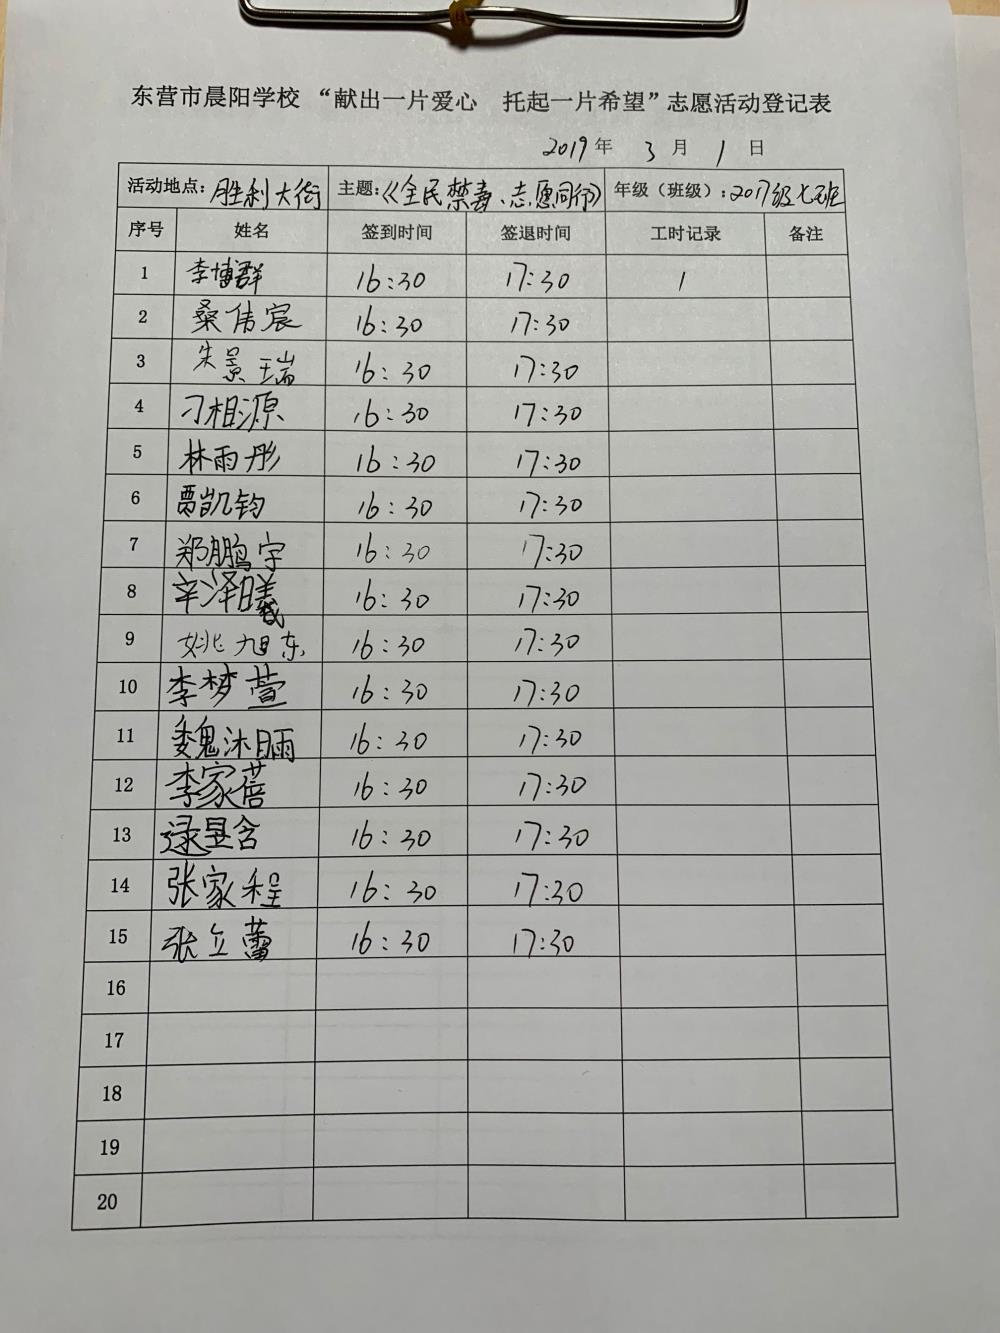 东营市晨阳学校 “献出一片爱心 托起一片希望”志愿活动登记表
2019 年 3 月 1 日
活动地点：胜利大街 主题：《全民禁毒、志愿同行》 年级（班级）：2017级七班
序号 姓名 签到时间 签退时间 工时记录 备注
1 李博群 16:30 17:30 1
2 桑伟宸 16:30 17:30
3 朱景瑞 16:30 17:30
4 刁相源 16:30 17:30
5 林雨彤 16:30 17:30
6 贾凯钧 16:30 17:30
7 郑鹏宇 16:30 17:30
8 辛泽曦 16:30 17:30
9 姚旭东 16:30 17:30
10 李梦萱 16:30 17:30
11 魏沐 16:30 17:30
12 李家蓓 16:30 17:30
13 逯昱含 16:30 17:30
14 张家程 16:30 17:30
15 张立蕾 16:30 17:30
16
17
18
19
20